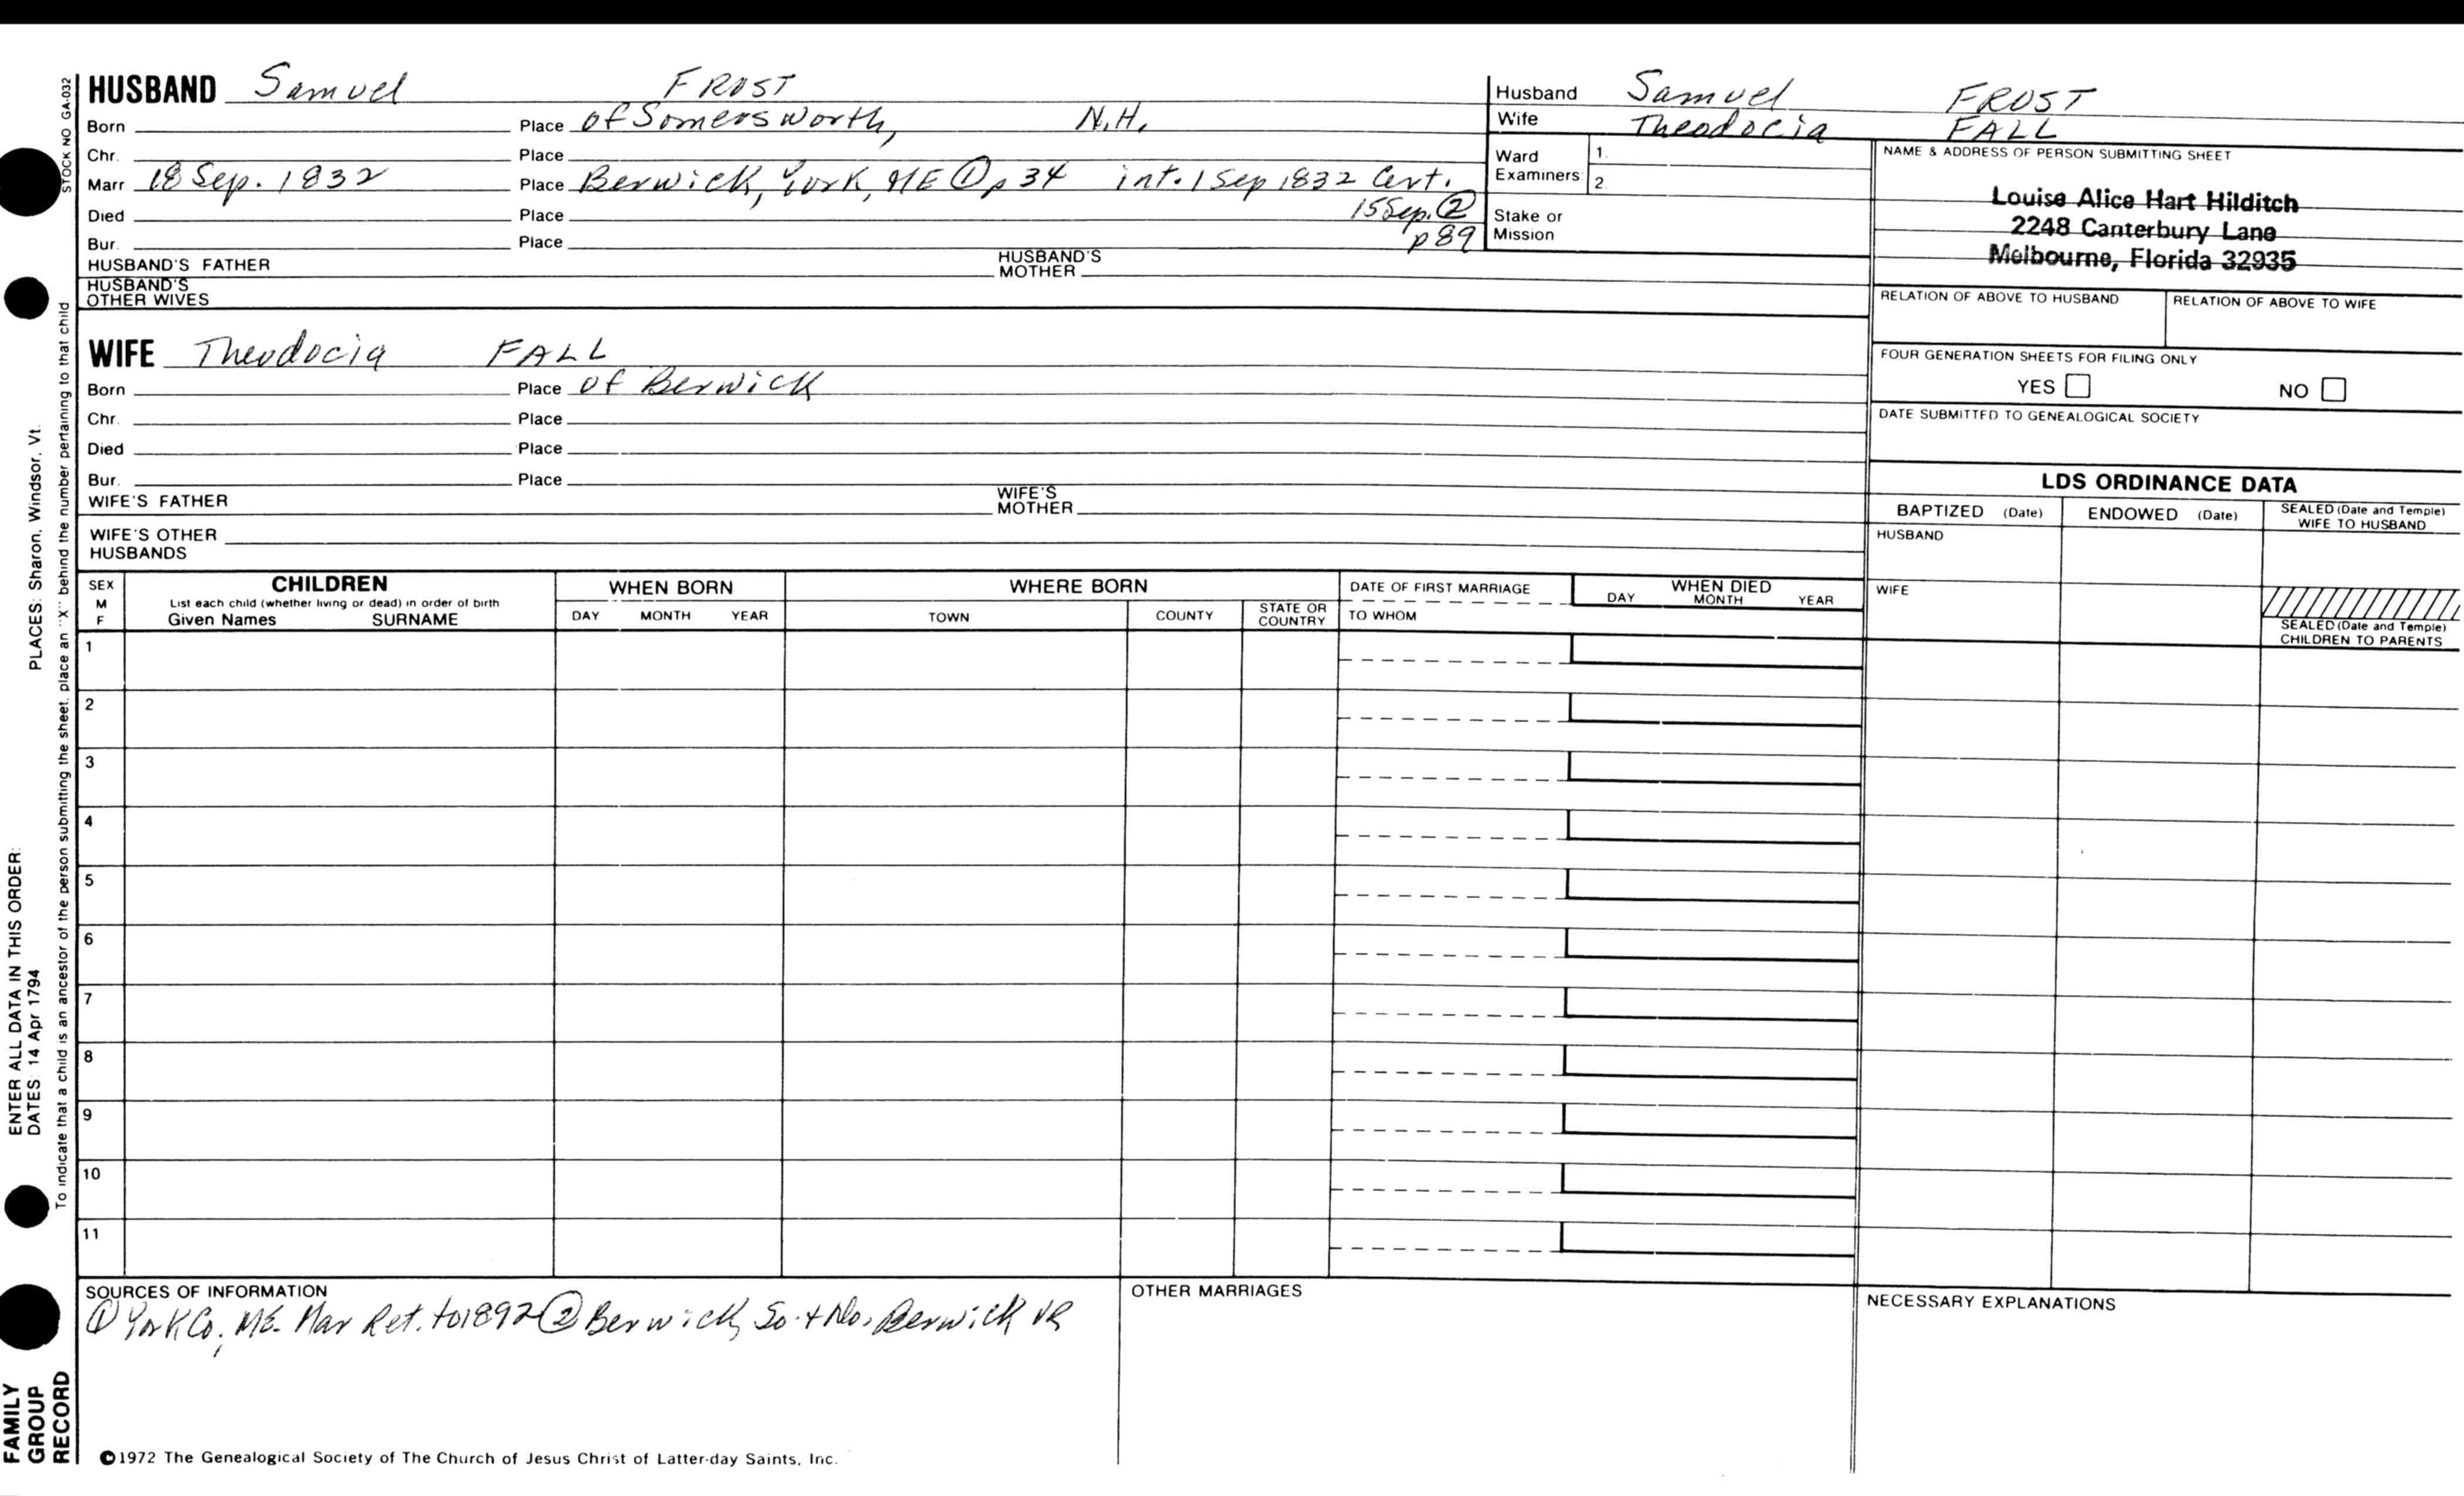 HUSBAND Samuel FROST
Born Place of Somersworth, N.H.
Chr. Place
Marr 18 Sep. 1832 Place Berwick, York, ME ① p 34 int. 1 Sep 1832 Cert.
15 Sep. ②
Died Place
p 89
Bur. Place
HUSBAND'S FATHER HUSBAND'S MOTHER
HUSBAND'S OTHER WIVES
WIFE Theodocia FALL
Born Place of Berwick
Chr. Place
Died Place
Bur. Place
WIFE'S FATHER WIFE'S MOTHER
WIFE'S OTHER HUSBANDS
Husband Samuel FROST
Wife Theodocia FALL
Ward Examiners 1. 2.
Stake or Mission
NAME & ADDRESS OF PERSON SUBMITTING SHEET
Louise Alice Hart Hilditch
2248 Canterbury Lane
Melbourne, Florida 32935
RELATION OF ABOVE TO HUSBAND RELATION OF ABOVE TO WIFE
FOUR GENERATION SHEETS FOR FILING ONLY
YES NO
DATE SUBMITTED TO GENEALOGICAL SOCIETY
LDS ORDINANCE DATA
BAPTIZED (Date) ENDOWED (Date) SEALED (Date and Temple) WIFE TO HUSBAND
HUSBAND
WIFE
SEALED (Date and Temple) CHILDREN TO PARENTS
SEX M F
CHILDREN
List each child (whether living or dead) in order of birth
Given Names SURNAME
WHEN BORN
DAY MONTH YEAR
WHERE BORN
TOWN COUNTY STATE OR COUNTRY
DATE OF FIRST MARRIAGE
TO WHOM
WHEN DIED
DAY MONTH YEAR
1
2
3
4
5
6
7
8
9
10
11
SOURCES OF INFORMATION
① York Co. ME. Mar Ret. to 1892 ② Berwick, So. + No. Berwick VR
OTHER MARRIAGES
NECESSARY EXPLANATIONS
©1972 The Genealogical Society of The Church of Jesus Christ of Latter-day Saints, Inc.
STOCK NO GA-032
To indicate that a child is an ancestor of the person submitting the sheet, place an "X" behind the number pertaining to that child
ENTER ALL DATA IN THIS ORDER:
DATES: 14 Apr 1794 PLACES: Sharon, Windsor, Vt.
FAMILY
GROUP
RECORD